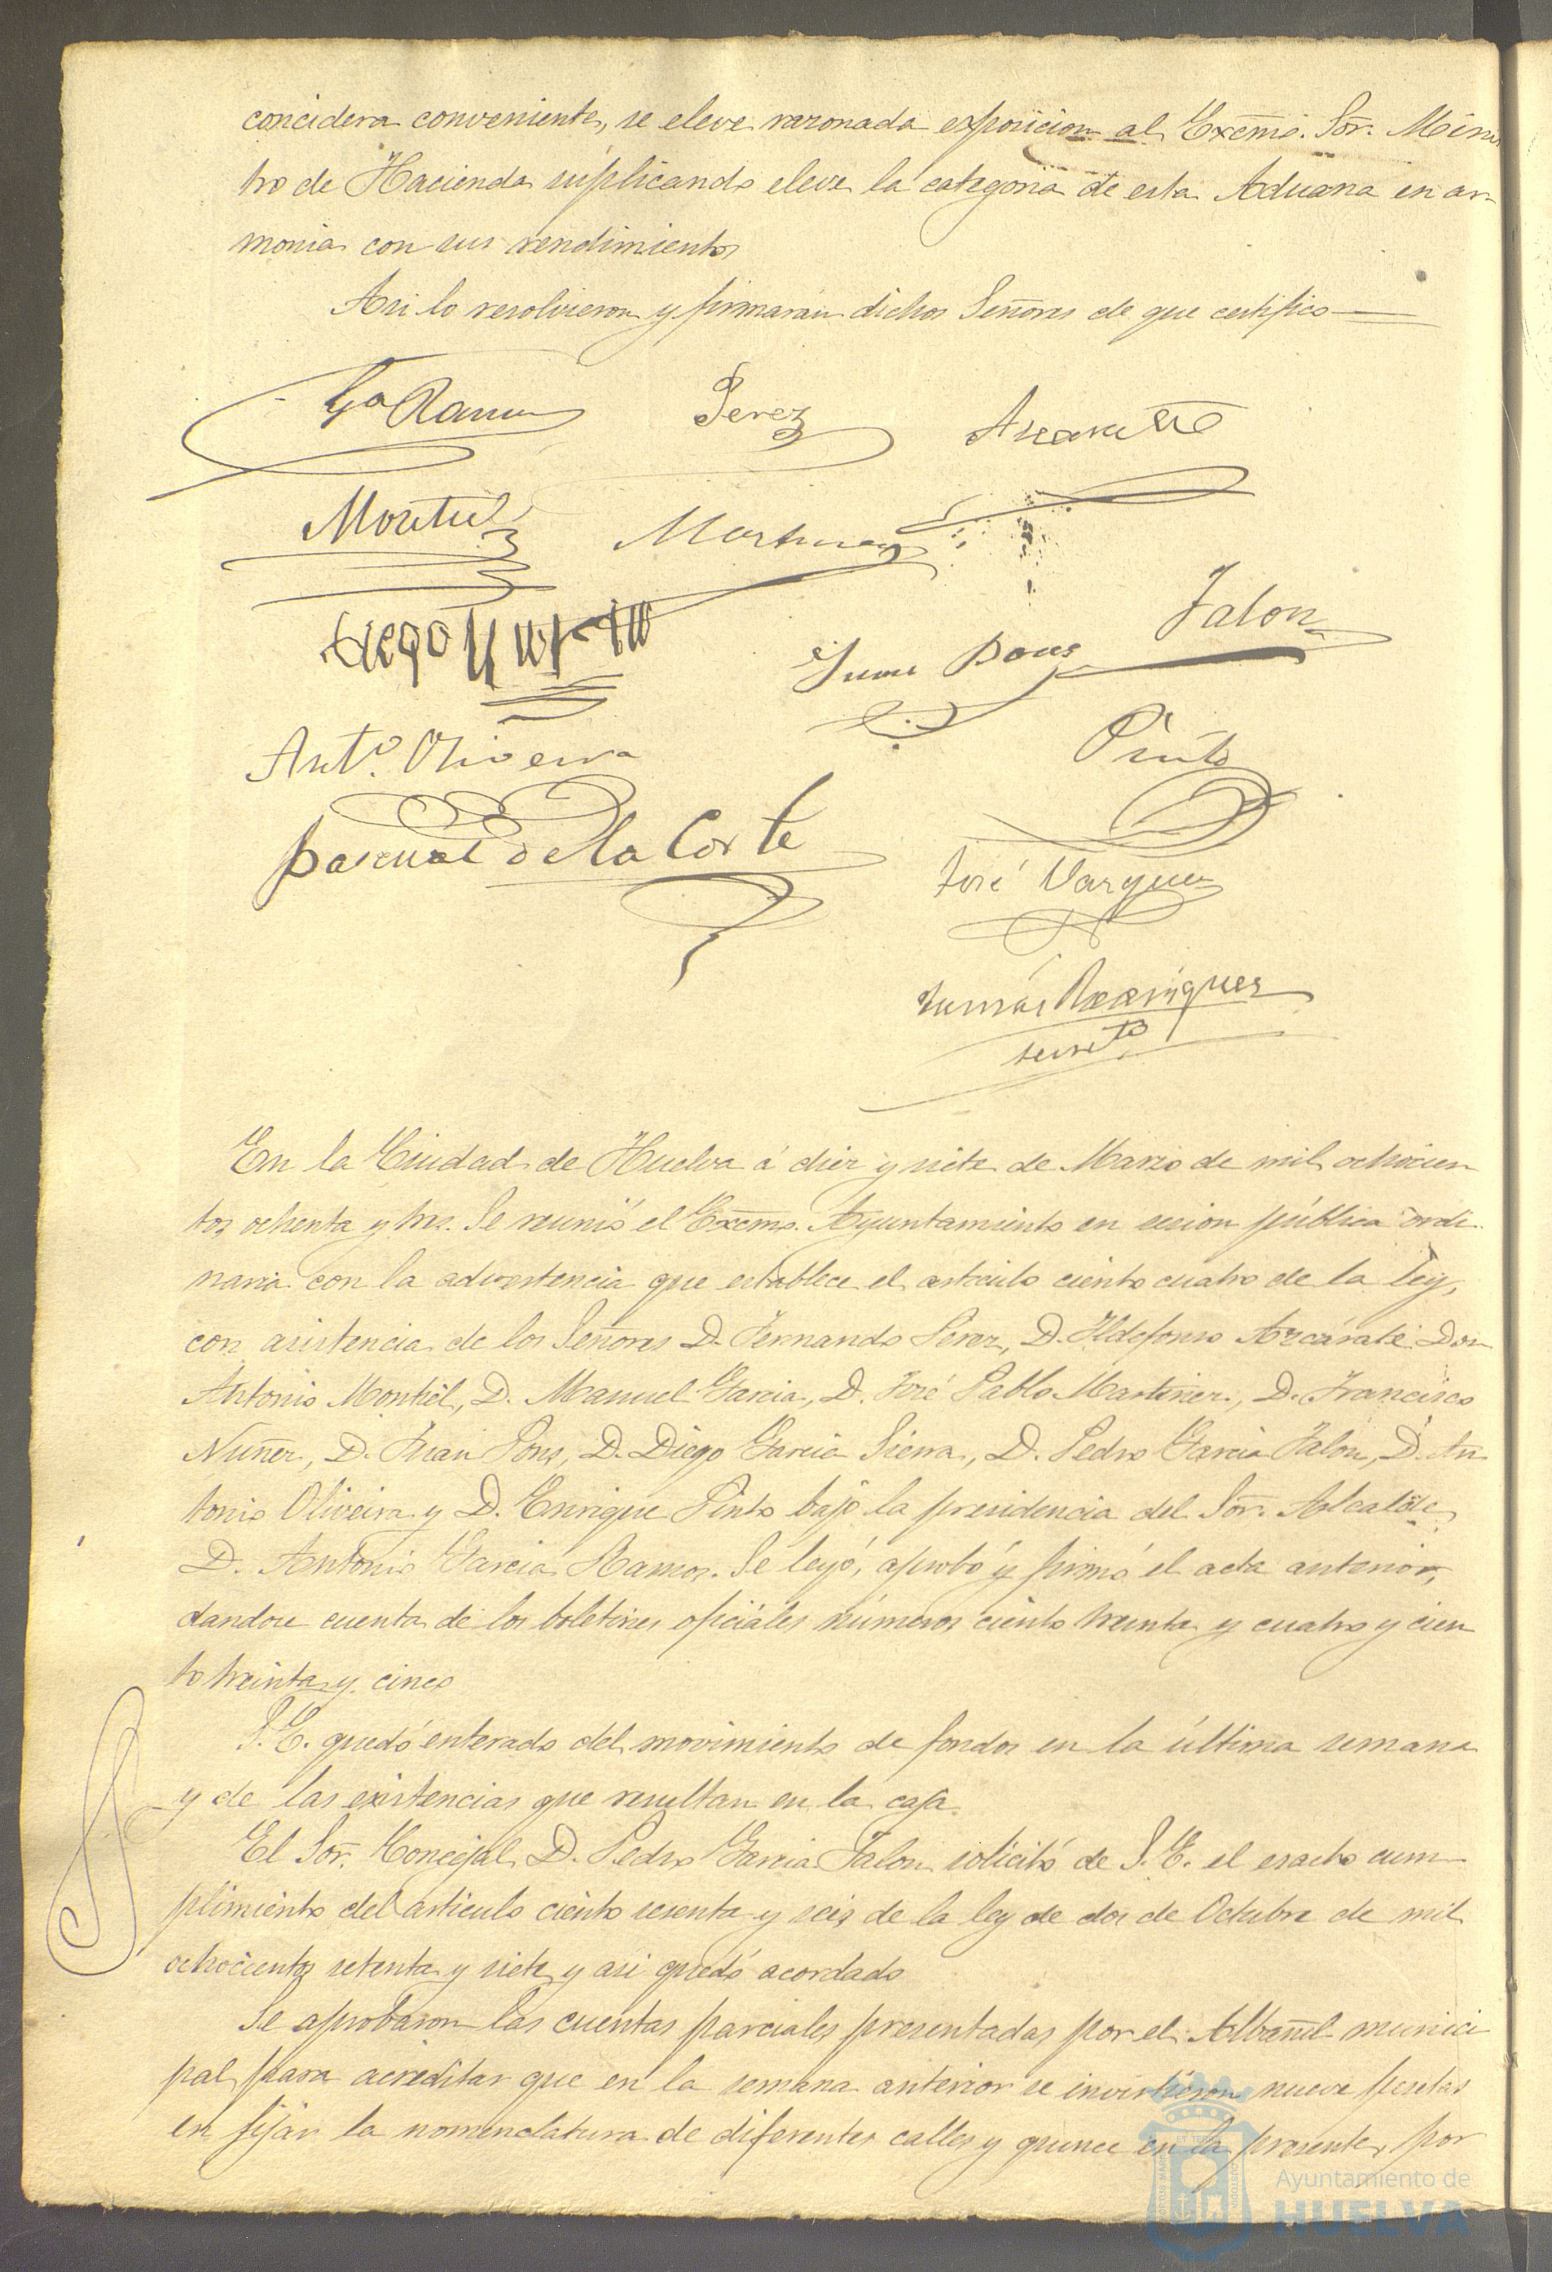 concidera conveniente, se eleve razonada exposicion al Excmo. Sor. Minis
tro de Hacienda suplicando eleve la categoria de esta Aduana en ar-
monia con sus rendimientos
Asi lo resolvieron y firmarán dichos Señores de que certifico
Ga Ramos
Perez
Azcarate
Montiel
Martinez
Diego
Jalon
Juan Pons
Anto. Oliveira
Pinto
Pascual de la Corte
José Vazquez
Tomás Rodriguez
secreto
En la Ciudad de Huelva á diez y siete de Marzo de mil ochocien
tos ochenta y tres. Se reunió el Excmo. Ayuntamiento en secion pública ordi-
naria con la advertencia que establece el articulo ciento cuatro de la ley,
con asistencia de los Señores D. Fernando Perez, D. Ildefonso Azcárate Don
Antonio Montiel, D. Manuel Garcia, D. José Pablo Martinez, D. Francisco
Nuñez, D. Juan Pons, D. Diego Garcia Sierra, D. Pedro Garcia Jalon, D. An
tonio Oliveira y D. Enrique Pinto bajo la presidencia del Sor. Alcalde
D. Antonio Garcia Ramos. Se leyó, aprobó y firmó el acta anterior,
dandose cuenta de los boletines oficiales números ciento treinta y cuatro y cien
to treinta y cinco
S. E. quedó enterado del movimiento de fondos en la última semana
y de las existencias que resultan en la caja
El Sor. Concejal D. Pedro Garcia Jalon solicitó de S. E. el exacto cum-
plimiento del articulo ciento sesenta y seis de la ley de dos de Octubre de mil
ochocientos setenta y siete y asi quedó acordado
Se aprobaron las cuentas parciales presentadas por el Albañil munici
pal para acreditar que en la semana anterior se invirtieron nueve pesetas
en fijar la nomenclatura de diferentes calles y quince en la presente, por
Ayuntamiento de
HUELVA